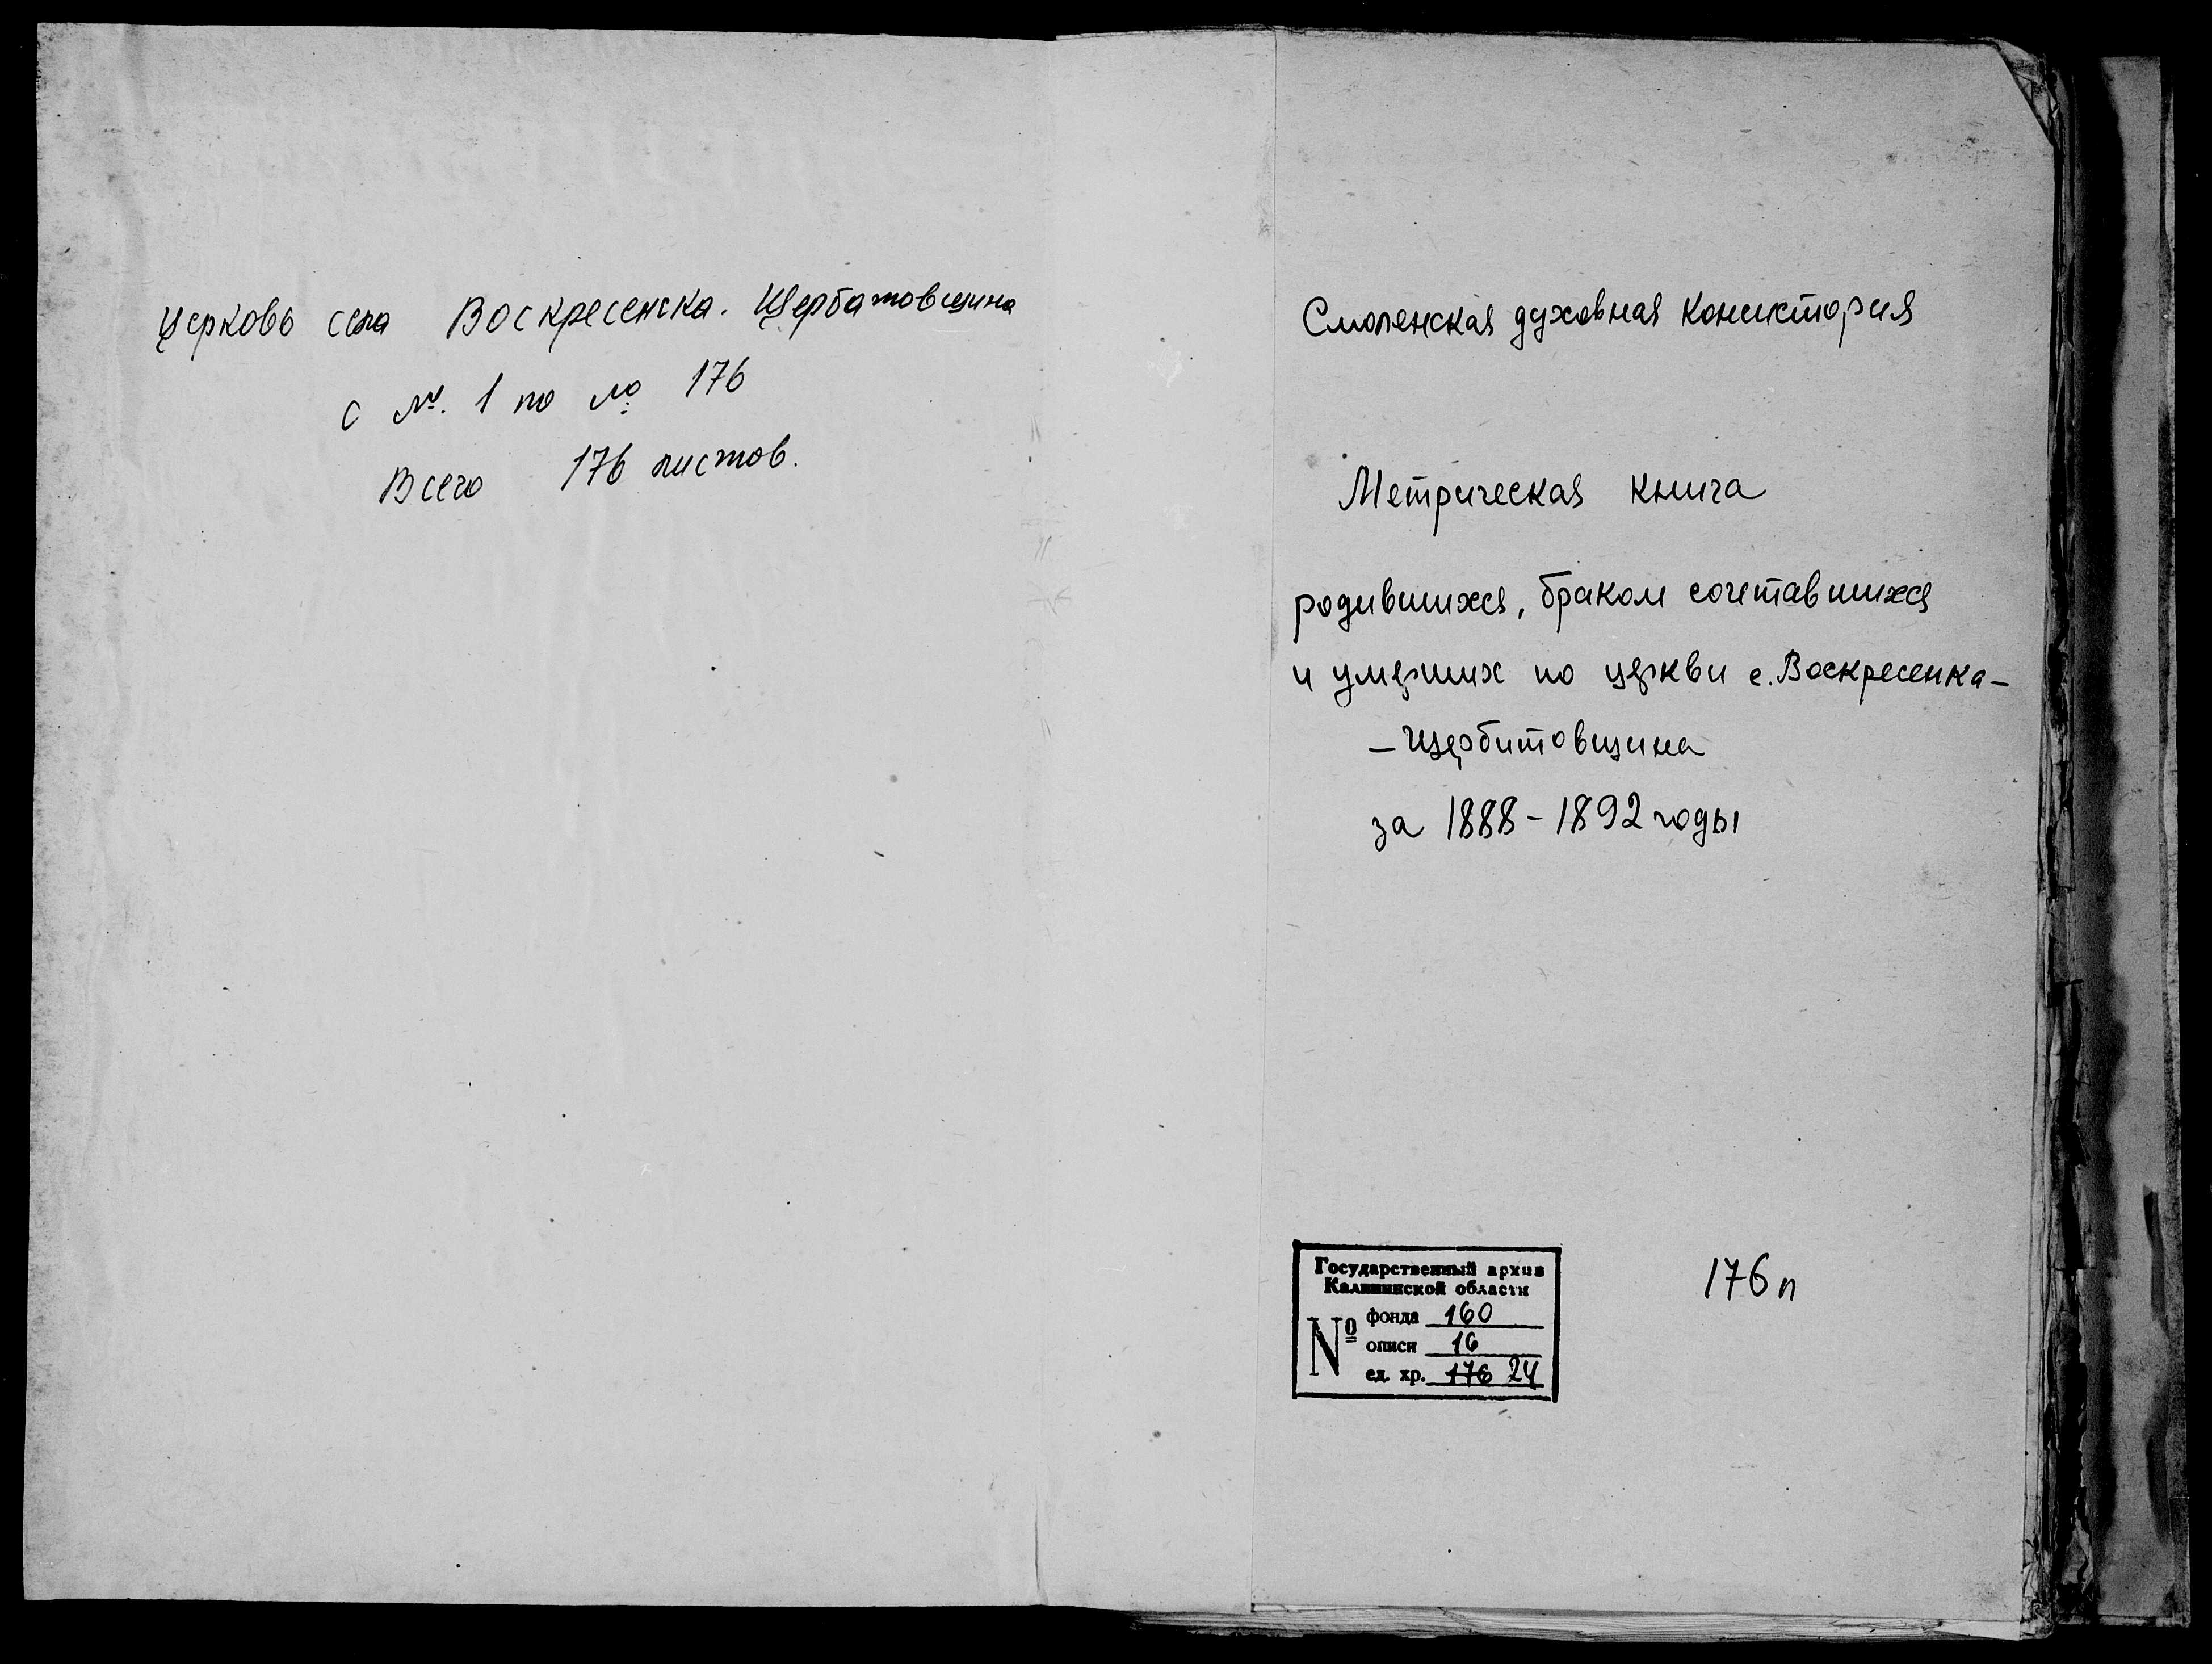 Церковь села Воскресенска. Щербатовщина
с №. 1 по № 176
Всего 176 листов.
Смоленская духовная консистория
Метрическая книга
родившихся, браком сочетавшихся
и умерших по церкви с. Воскресенка-
- Щербитовщина
за 1888-1892 годы
176 л
Государственный архив
Калининской области
№ фонда 160
описи 16
ед. хр. 176 24